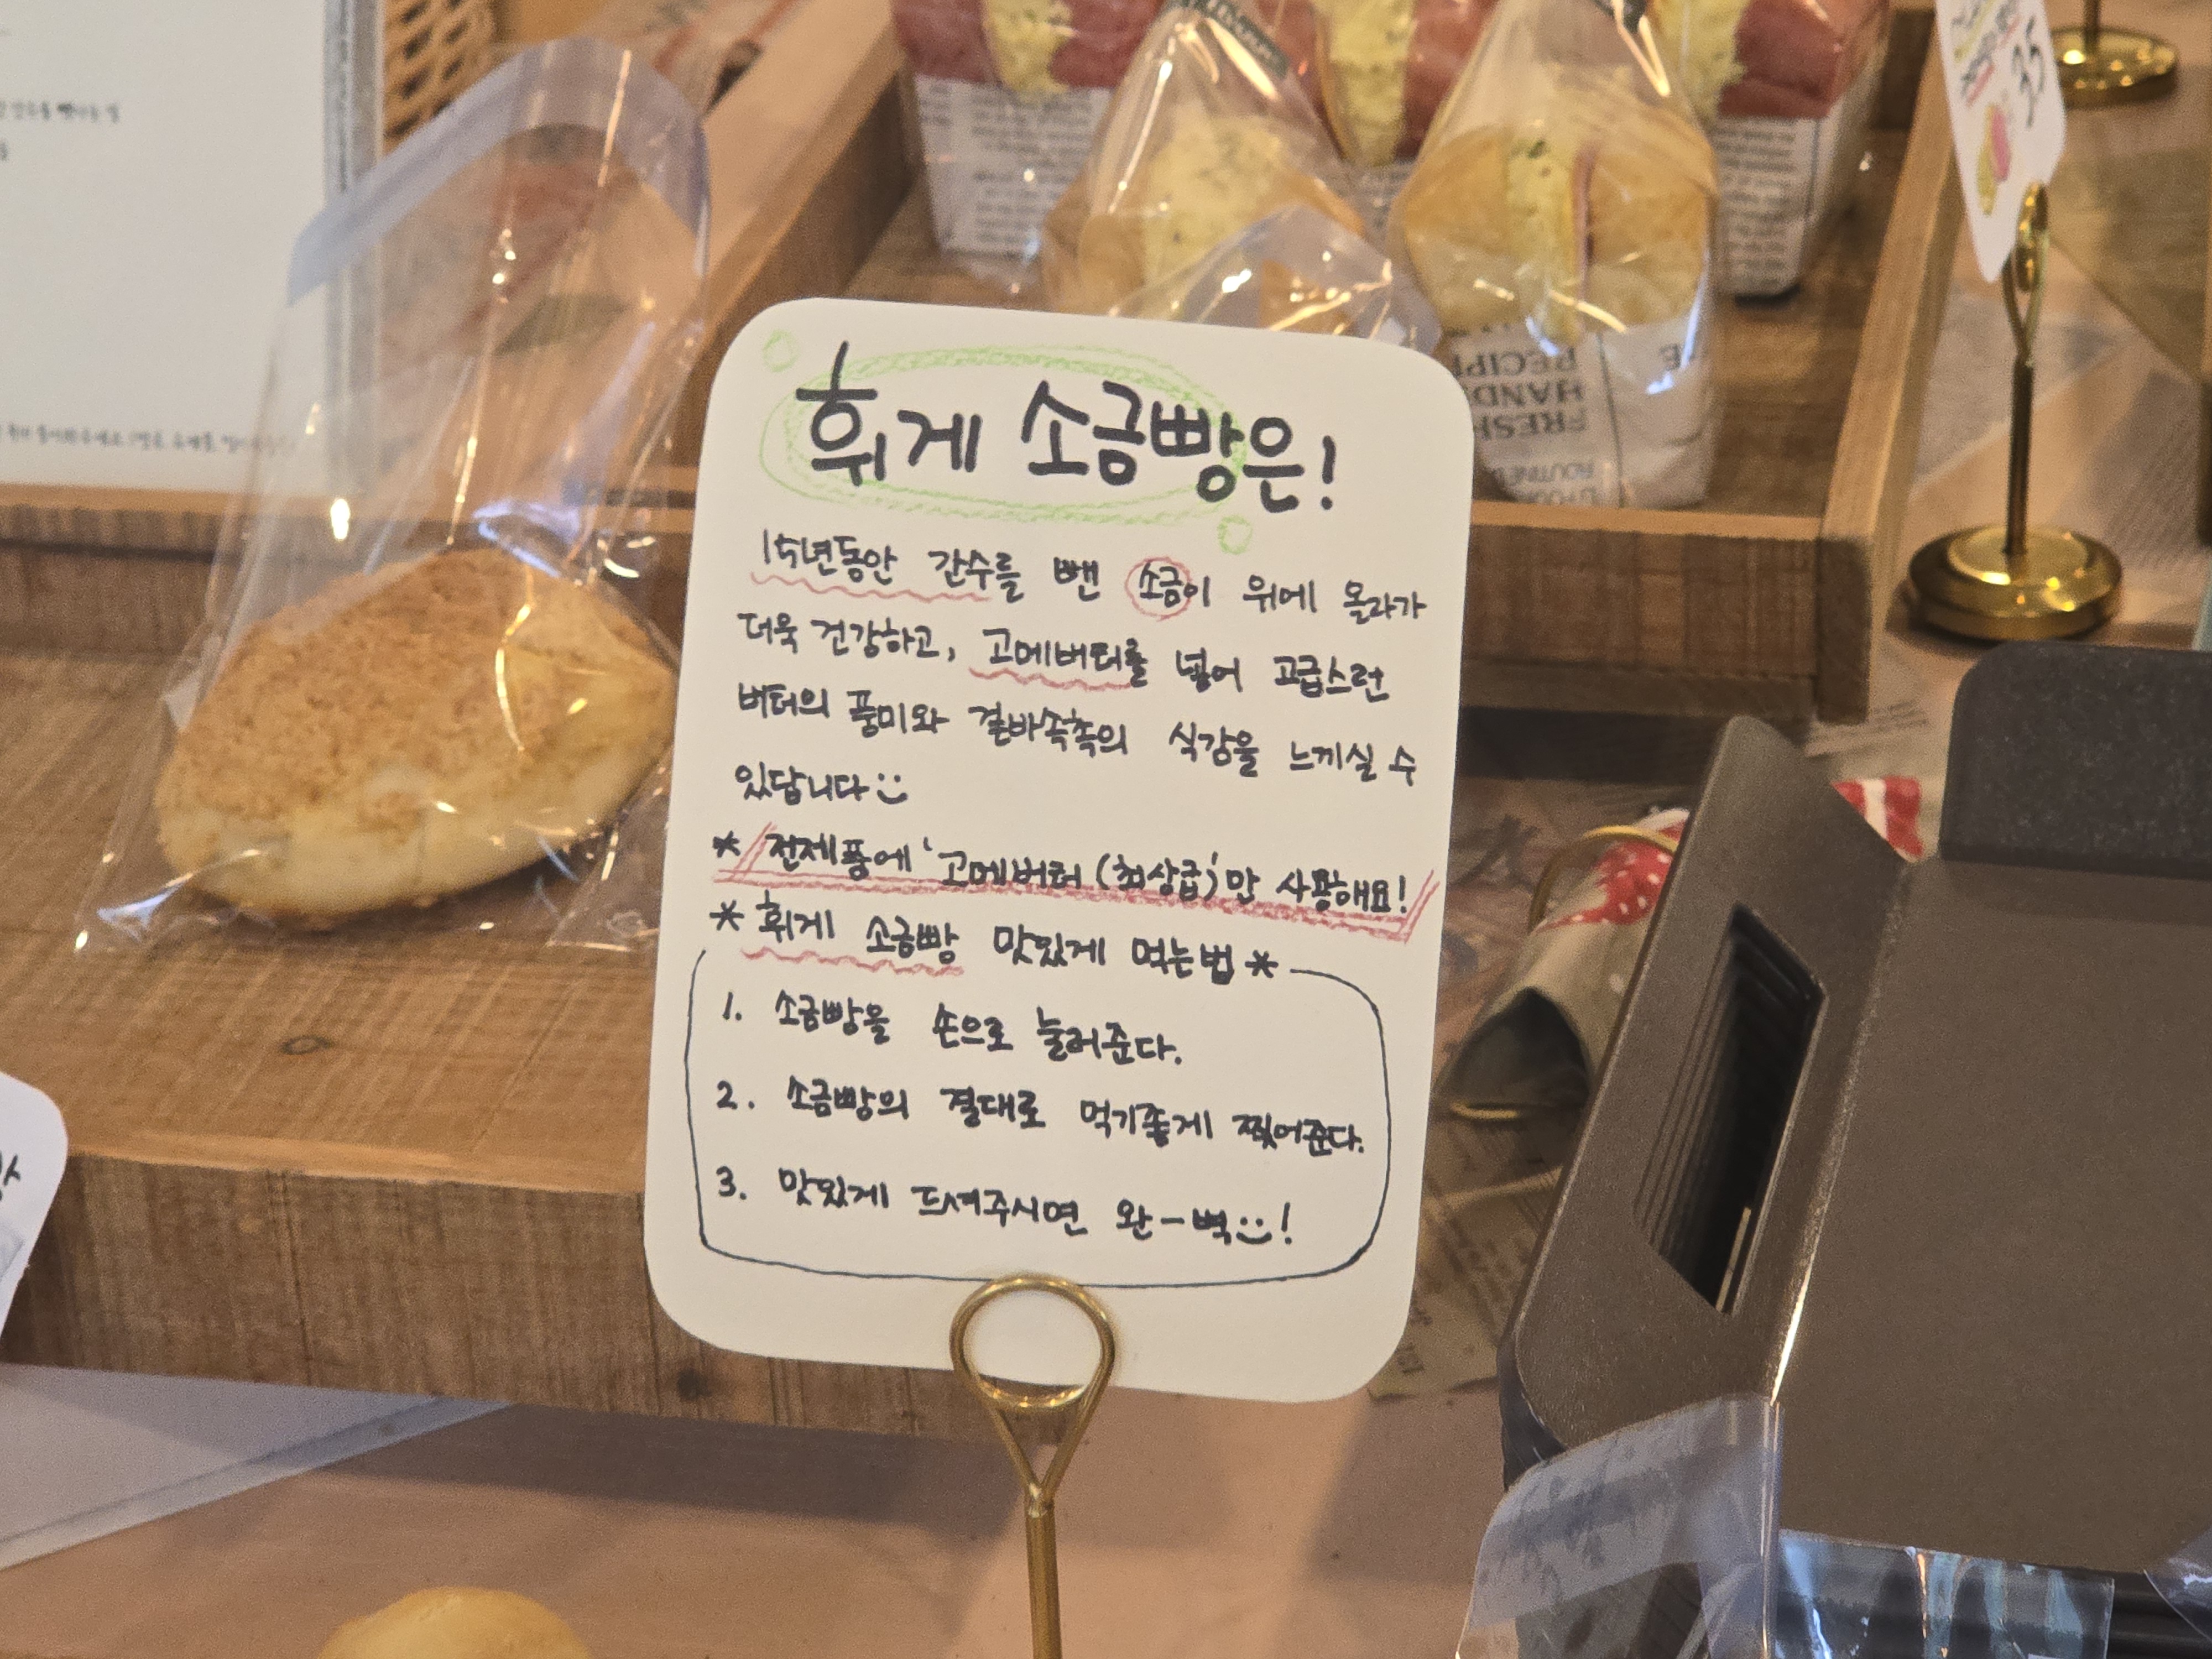 휘게 소금빵은!
15년동안 간수를 뺀 소금이 위에 올라가
더욱 건강하고, 고메버터를 넣어 고급스런
버터의 풍미와 겉바속촉의 식감을 느끼실 수
있답니다
* 전제품에 '고메버터 (최상급)'만 사용해요!
* 휘게 소금빵 맛있게 먹는법 *
1. 소금빵을 손으로 눌러준다.
2. 소금빵의 결대로 먹기좋게 찢어준다.
3. 맛있게 드셔주시면 완-벽!
FRESH
HAND
RECIP
ROUTINE
35